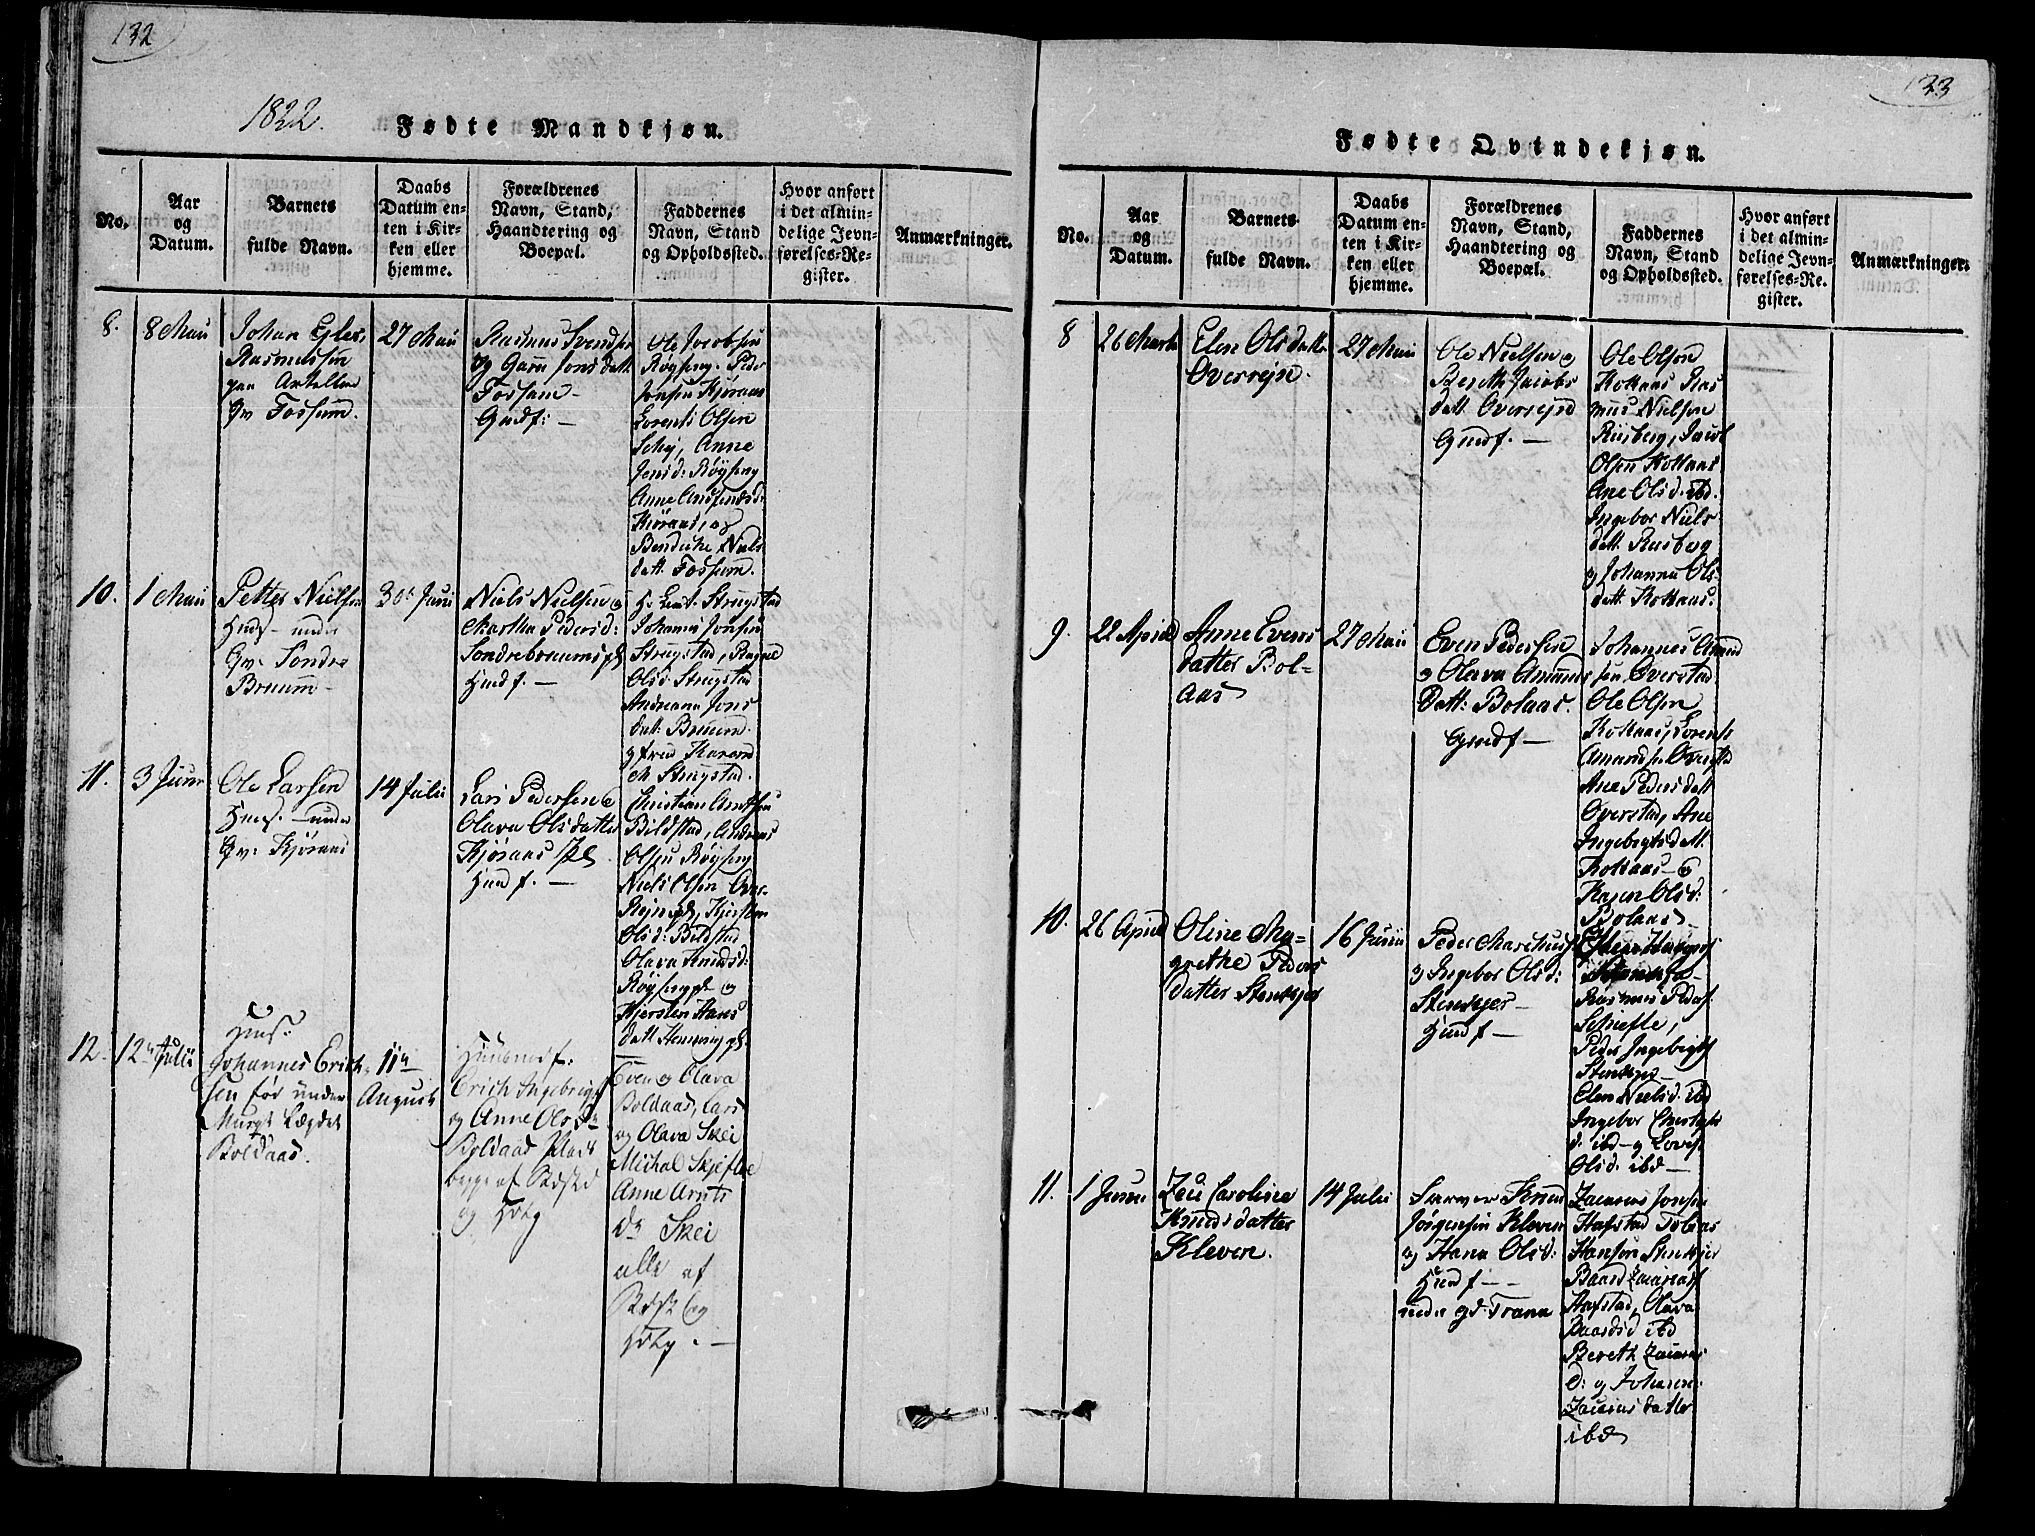 132
1822.
Fødte Mandkjøn.
No.
Aar
og
Datum.
Barnets
fulde Navn.
Daabs
Datum en-
ten i Kir-
ken eller
hjemme.
Forældrenes
Navn, Stand,
Haandtering og
Boepæl.
Faddernes
Navn, Stand
og Opholdssted.
Hvor anført
i det almin-
delige Jevn-
førelses-Re-
gister.
Anmærkninger.
8.
8 Maii
Johan
Rasmussen
Fossum.
27 Maii
Rasmus Svends
og Jonsdatt
Fossum -
Gmdf: -
Ole Jacobsen
Røyseng. Peder
Jonsen Kjøraas
Lorents Olsen
Schej, Anne
Jensd: Røyseng
Anne
Kjøraas, og
Bendicke Niels
datt. Fossum.
10.
1 Maii
Petter Nielsen
Huus- under
Gr. Søndre
Bruum -
30t Juni
Niels Nielsen og
Martha Pedersd:
Søndrebruumspl
Husf. -
Hr Leut. Strugstad
Johannes Jonsen
Strugstad,
Olsd. Strugstad
Andreana Jons
datt. Bruum.
og fred Karen
M. Strugstad.
11.
3 Juni
Ole Larsen
Huus. - under
Gr: Kjøraas
14 Julii
Lars Pedersen og
Olava Olsdatter
Kjøraas Pl.
Husf. -
Christian Arntsen
Bildstad, Andreas
Olsen Røyseng
Niels Olsen Over-
Rejnspl, Kjersten
Olsd: Bildstad
Olava Knudsd:
Røysengpl og
Kjersten Hans
datt. Henningpl.
12.
12te Julii
Huus.
Johannes Erich-
sen født under
Boldaas.
11te
August
Huusmdf.
Erich Ingebrigts
og Anne Olsdr
Boldaas Plads
og Hdlg
Even og Olava
Boldaas, Lars
og Olava Skei
Michal Skjefloe
Anne Arnts
dr Skei
alle af
og
Hdlg. -
133
Fødte Qvindekjøn.
No.
Aar
og
Datum.
Barnets
fulde Navn.
Daabs
Datum en-
ten i Kir-
ken eller
hjemme.
Forældrenes
Navn, Stand,
Haandtering og
Boepæl.
Faddernes
Navn, Stand
og Opholdssted.
Hvor anført
i det almin-
delige Jevn-
førelses-Re-
gister.
Anmærkninger.
8
26 Marts
Elen Olsdatter
Overrejn.
27 Maii
Ole Nielsen og
Bereth Jacobs
datt. Overrejn
Gmdf. -
Ole Olsen
Kolkaas Ras
mus Nielsen
Rusberg, Jacob
Olsen Kolkaas
Ane Olsd. ibd.
Ingebor Niels
datt. Rusberg
og Johanna Ols
datt. Kolkaas.
9.
22 April
Anne Evens
datter Bol-
aas
27 Maii
Even Pedersen
og Olava Amunds
datt: Bolaas.
Gmdf -
Johannes Amund
sen Overstad
Ole Olsen
Kolkaas, Lorents
Amunds. Oversta
Ane Pedersdatt
Overstad, Ane
Ingebrigtsdatt.
Kolkaas - og
Karen Olsd:
Bolaas
10.
26 April
Oline Ma-
grethe Peders
datter Stenkjer
16 Junii
Peder
og Ingebor Olsd:
Stenkjer -
Husf -
Rasmus Peders.
Schiefle,
Peder Ingebrigts
Stenkjer -
Elen Nielsd. ibd
Ingebor
d. ibd - og Lovise
Olsd. ibd -
11.
1 Junii
Caroline
Knudsdatter
Kleven.
14 Julii
Knud
Jørgensen Kleven
og Hana Olsd:
Husf - -
under gd. Trana
Zacarias Jonsen
Hafstad Tobias
Hansen Stenkjer
Baard Zacarias.
Hafstad, Olava
Baardsd ibd
Bereth Zacarias
d: og Johanna
Zacarias datter
ibd